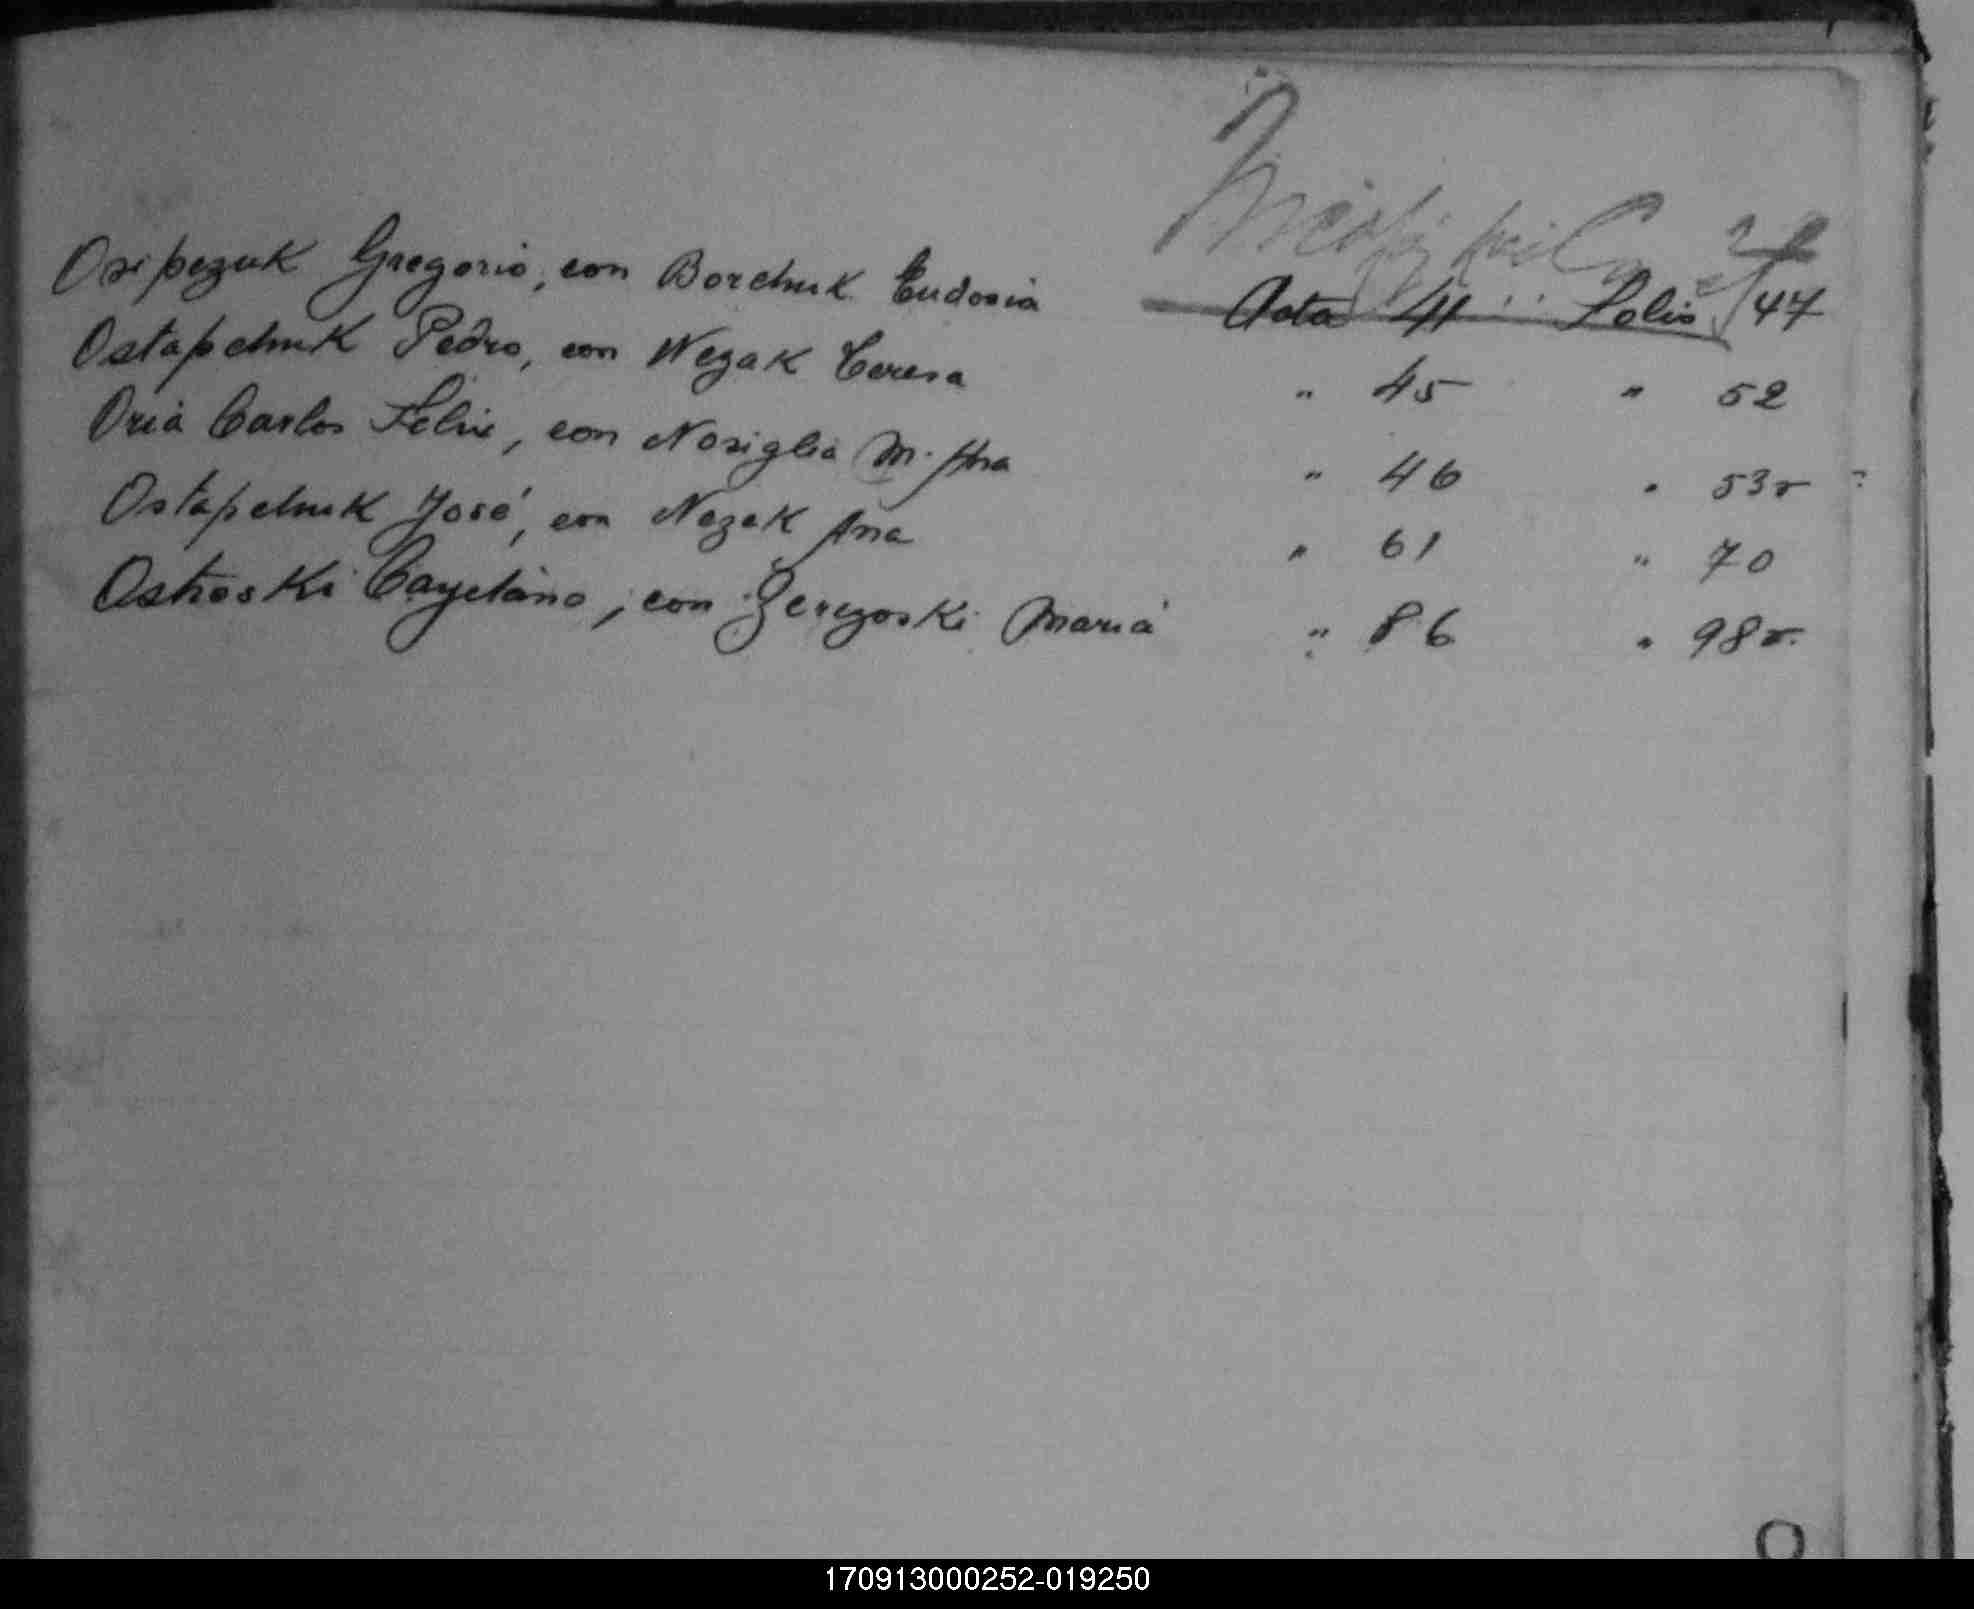 Osipezuk Gregorio, con Borchuk Eudosia Acta 41 Folio 47
Ostapchuk Pedro, con Nezak Teresa " 45 " 52
Oria Carlos Felix, con Nosiglia M. Ana " 46 " 53v
Ostapchuk José, con Nezek Ana " 61 " 70
Ostroski Cayetano, con Zerezoski Maria " 86 " 98v.
O
170913000252-019250